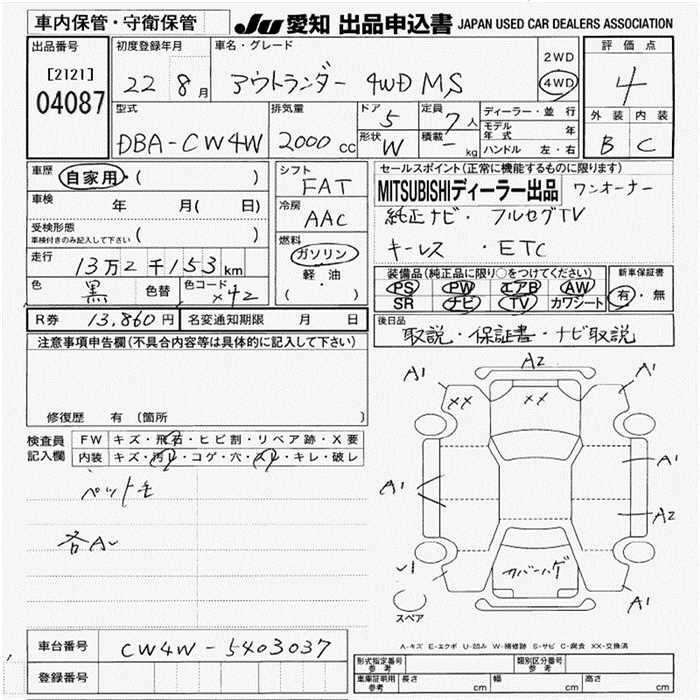 車内保管・守衛保管
JU 愛知 出品申込書 JAPAN USED CAR DEALERS ASSOCIATION
出品番号
[2121]
04087
初度登録年月
22 8月
車名・グレード
アウトランダー 4WD MS
2WD
4WD
評価点
4
外装 内装
B C
型式
DBA-CW4W
排気量
2000 cc
ドア 5
形状 W
定員 7人
積載 - kg
ディーラー・並行
モデル年式 年
ハンドル 左・右
車歴 自家用・( )
車検 年 月( 日)
受検形態
車検付きのみ記入して下さい ( )
走行 13万2千153km
色 黒 色替 色コード X42
シフト
FAT
冷房
AAC
燃料
ガソリン
軽・油
( )
セールスポイント(正常に機能するものに限ります)
MITSUBISHIディーラー出品 ワンオーナー
純正ナビ・フルセグTV
キーレス ・ETC
装備品(純正品に限り○をつけてください)
PS PW エアB AW
SR ナビ TV カワシート
新車保証書
有・無
R券 13,860円 名変通知期限 月 日
後日品
取説・保証書・ナビ取説
注意事項申告欄(不具合内容等は具体的に記入して下さい)
修復歴 有 (箇所 )
検査員記入欄
FW キズ・飛石・ヒビ割・リペア跡・X要
内装 キズ・汚レ・コゲ・穴・スレ・キレ・破レ
ペット毛
A1 A2 A1
XX XX
A1 A1
A2
カバーハゲ
A1
スペア
A-キズ E-エクボ U-凹み W-補修跡 S-サビ C-腐食 XX-交換済
車台番号 CW4W-5403037
登録番号
形式指定番号参考 類別区分番号参考
車庫証明用参考 長さ cm 幅 cm 高さ cm